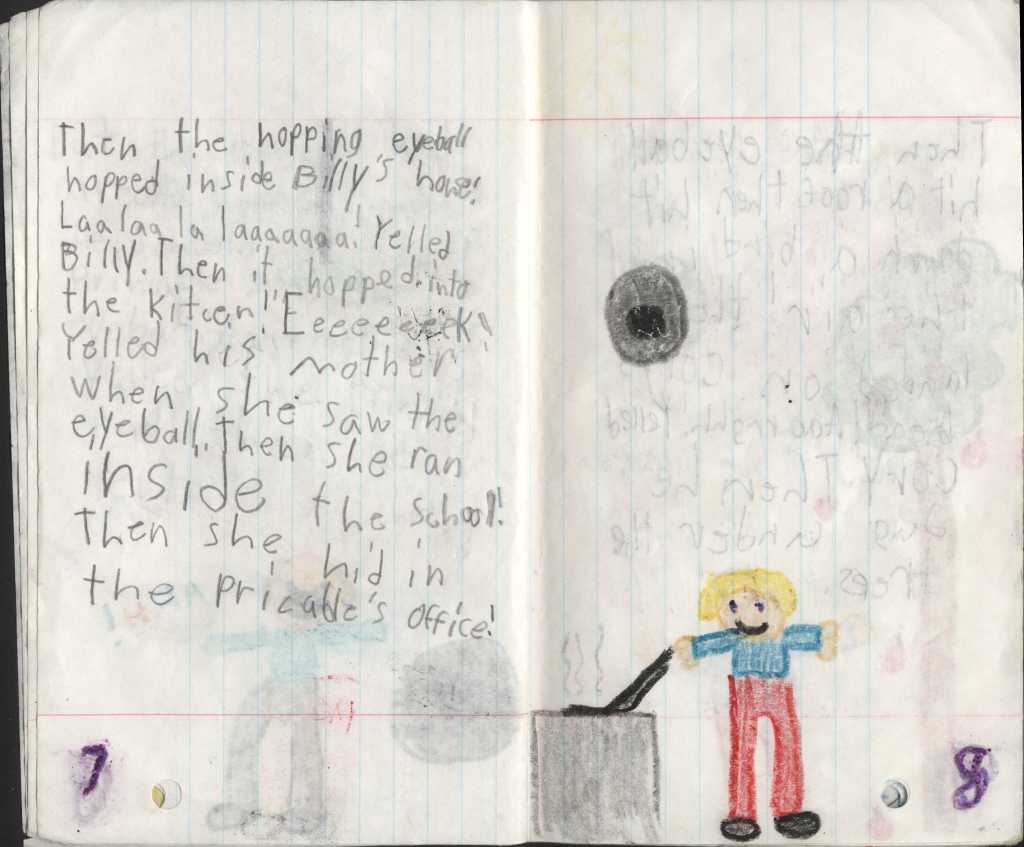 Then the hopping eyeball
hopped inside Billy's house!
Laalaa la laaaaaaa! Yelled
Billy. Then it hopped into
the Kitcen! "Eeeeeeeek!
Yelled his mother
when she saw the
eyeball. Then she ran
inside the school!
Then she hid in
the pricable's office!
7
8